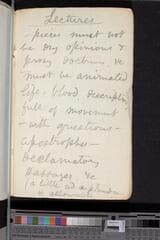 Lectures
pieces must not
be dry opinions &
prosy doctrine &c
must be animated
life-blood description
full of movement
—with questions—
apostrophes—
declamatory
passages &c
(a little ad
& allow